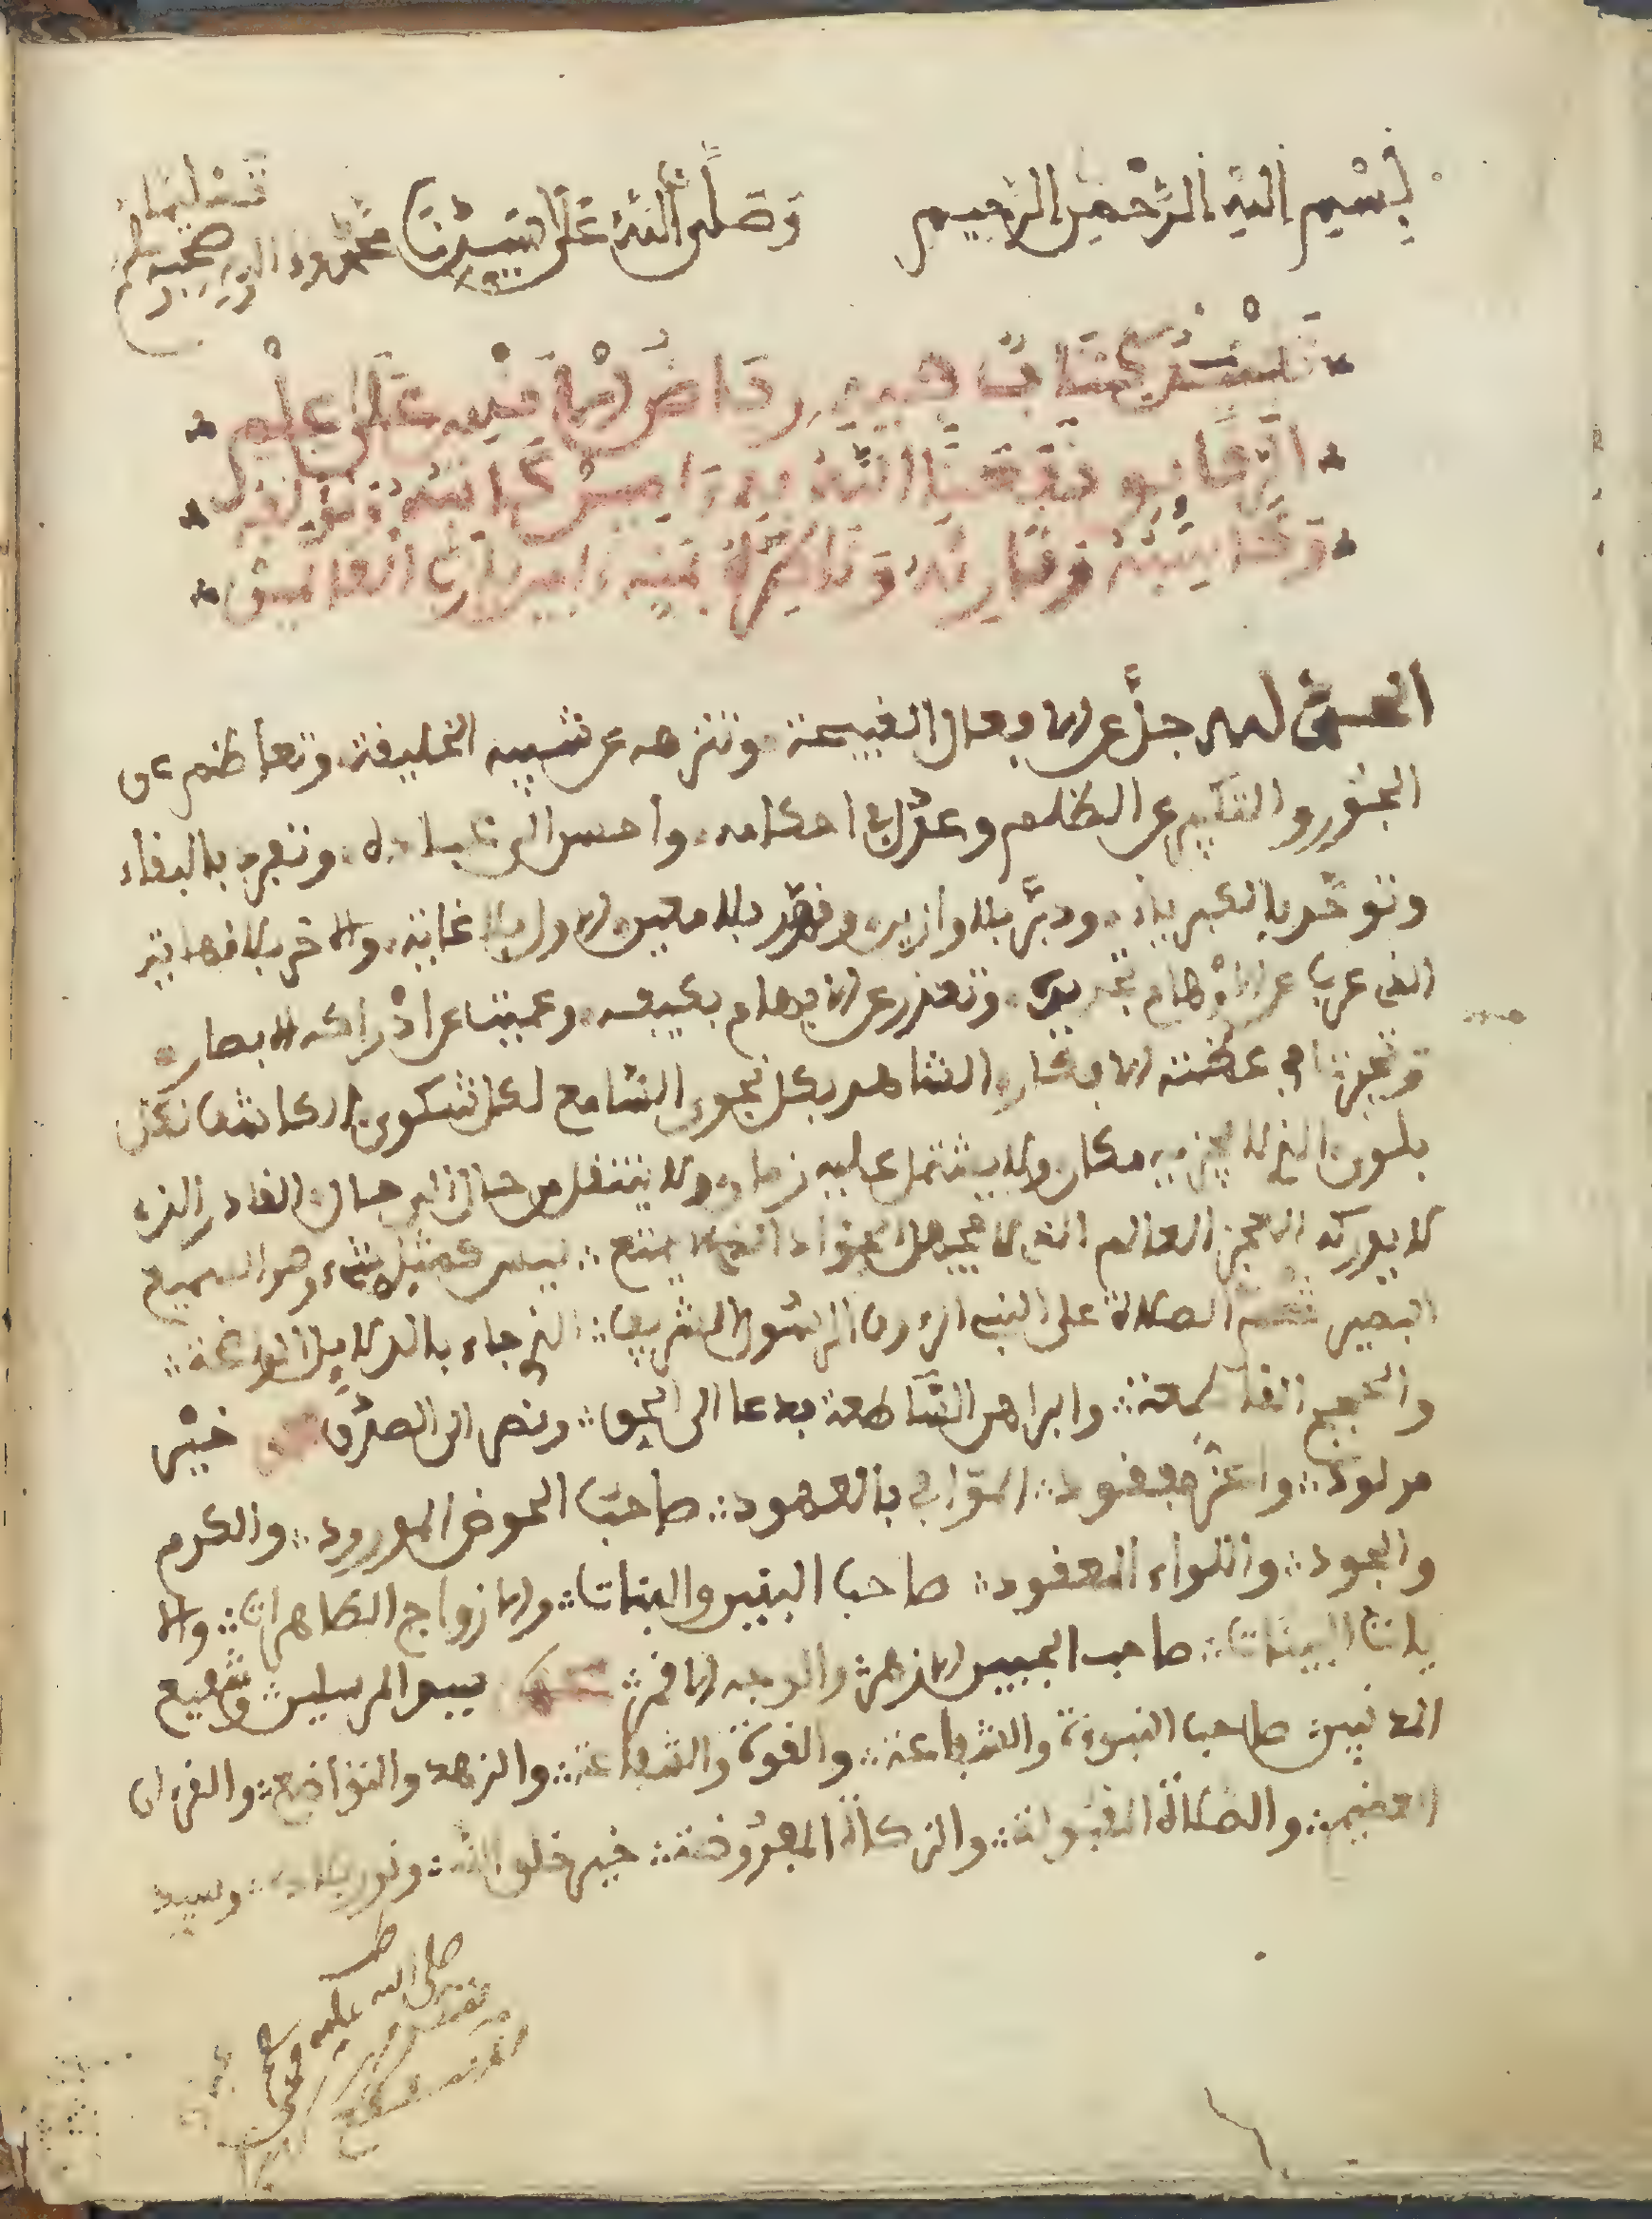 بسم الله الرحمن الرحيم وصلى الله على سيدنا محمد وءاله وصحبه وسلم تسليما
كتاب فيه رياضة على علم
نفعنا الله به ءامين
وكاسبه وقاريه وناظره فيه ءامين يا رب العالمين
الحمد لله جل عن الافعال القبيحة وتنزه عن شبيه الخليقة وتعاظم عن
الجور والتكبر عن الظلم وعدل في احكامه واحسن الى عباده وتفرد بالبقاء
وتوحد بالكبرياء ودبر بلا وازير وقهر بلا معين الاول بلا غاية والاخر بلا نهاية
الذي عزب عن الاوهام تحديده وتعذر عن الافهام بكيفه وعميت عن ادراكه الابصار
وتحيرت في عظمته الافكار الشاهد بكل نجوى السامع لكل شكوى الكاشف لكل
بلوى الذي لا يحويه مكان ولا يشتمل عليه زمان ولا ينتقل من حال الى حال القادر الذي
لا يدركه العجز العالم الذي لا يجهل الجواد الذي لا يمنع ليس كمثله شيء وهو السميع
البصير ثم الصلاة على النبي الرءوف الرسول الشريف الذي جاء بالدلايل الواضحة
والحجج القاطعة وابراهن الساطعة فدعا الى الحق ونص الى الصدق خير
مولود واعز مفقود الموافي بالعهود صاحب الحوض المورود والكرم
والجود واللواء المعقود صاحب البنين والبنات والازواج الطاهرات والا
يات البينات صاحب الجبين الازهر والوجه الاقمر محمد سيد المرسلين وشفيع
المذنبين صاحب النبوة والشفاعة والقوة والشجاعة والزهد والتواضع والقرءان
العظيم والصلاة المقبولة والزكاة المفروضة خير خلق الله ونور بلاده وسيد
صلى الله عليه وسلم